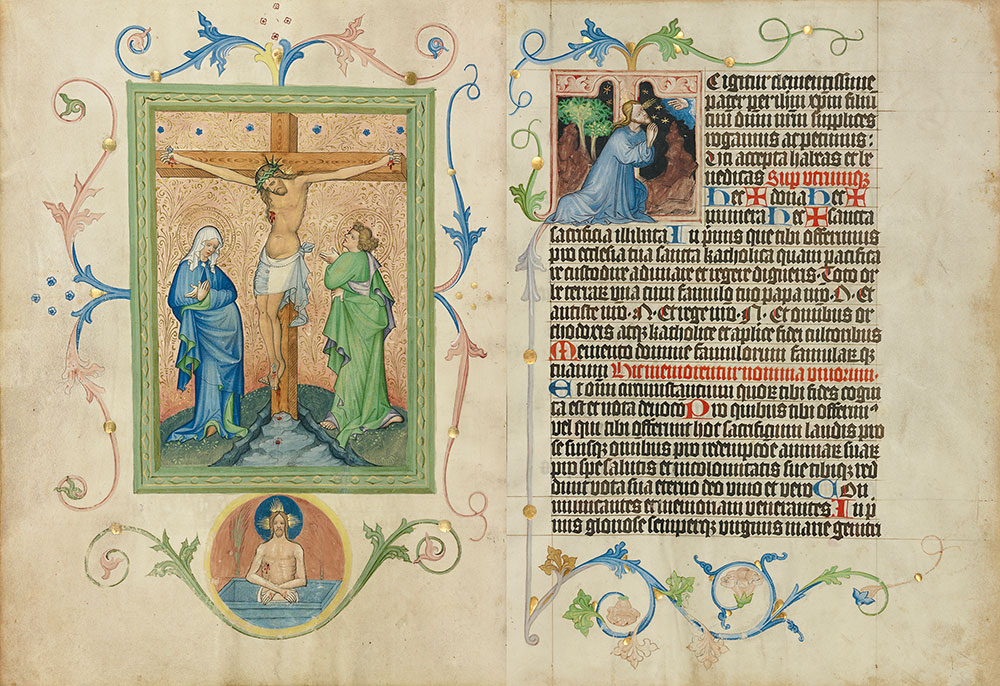 E igitur clementissime
pater per ihm xpm filiu
tuū dnm nrm supplices
rogamus ac petimus:
Vti accepta habeas et be
nedicas Sup vtrumqꝫ
Hec ✠ dona Hec ✠
munera Hec ✠ sancta
sacrificia illibata In pmis que tibi offerimus
pro ecclesia tua sancta katholica quam pacifica
re custodire adunare et regere digneris Toto or
be terraꝝ vna cum famulo tuo papa nro .N. Et
antistite nro .N. Et rege nro .N. Et omibus or
thodoxis atqꝫ katholice et aplice fidei cultoribus
Memento domine famulorum famulaꝝ qꝫ
tuarum Hic memorentur nomina viuorum.
Et omīm circumstantium quoꝝ tibi fides cogni
ta est et nota deuoco Pro quibus tibi offerim⁹
vel qui tibi offerunt hoc sacrificium laudis pro
se suisqꝫ omibus pro redempcōe animaꝝ suaꝝ
pro spe salutis et incolomitatis sue tibiqꝫ red
dunt vota sua eterno deo viuo et vero Com
municantes et memoriam venerantes In p
mis gloriose semperqꝫ virginis marie genitri